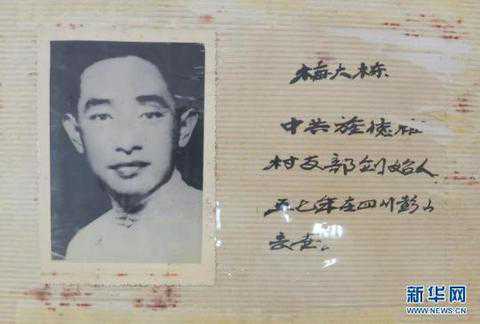 梅大栋
中共旌德
村支部创始人
五七年在四川彭山
新华网
WWW.NEWS.CN